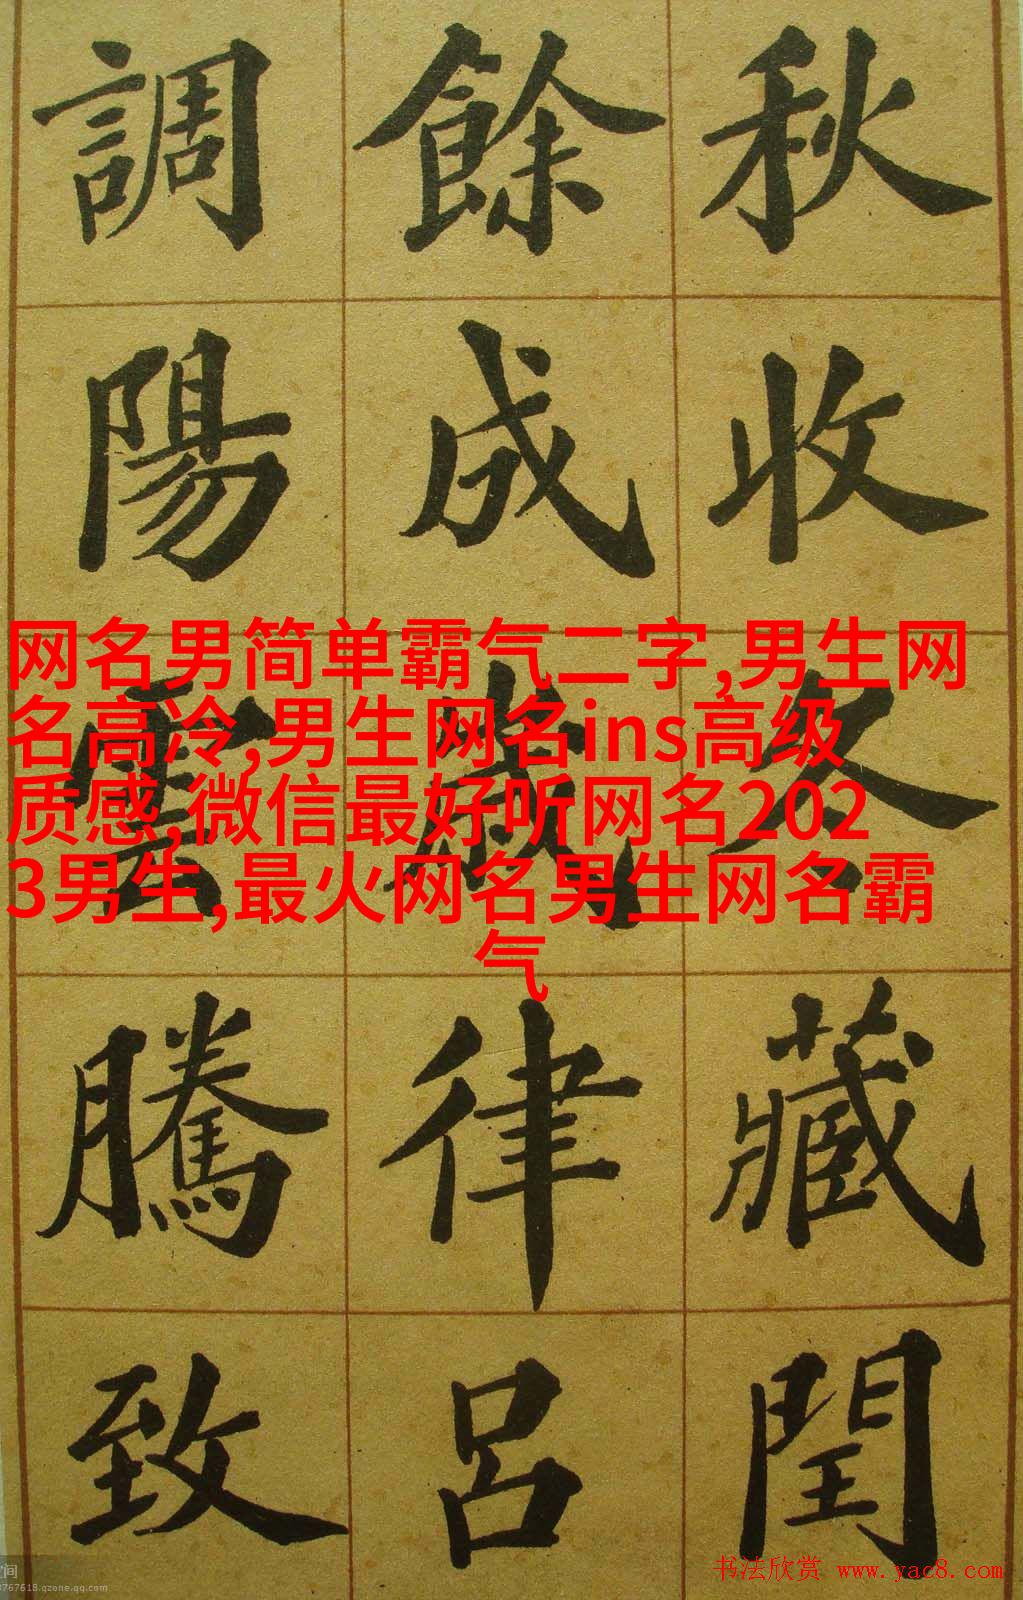 秋收冬藏閏
餘成歲律呂
調陽雲騰致
网名男简单霸气二字,男生网
名高冷,男生网名ins高级
质感,微信最好听网名202
3男生,最火网名男生网名霸
气
书法欣赏 www.yac8.com
空间
8767618.qzone.qq.com